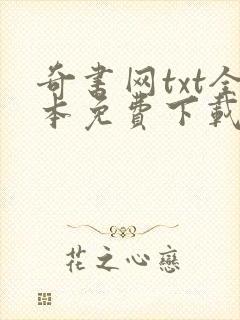 奇書网txt全
本免費下載
花之心戀